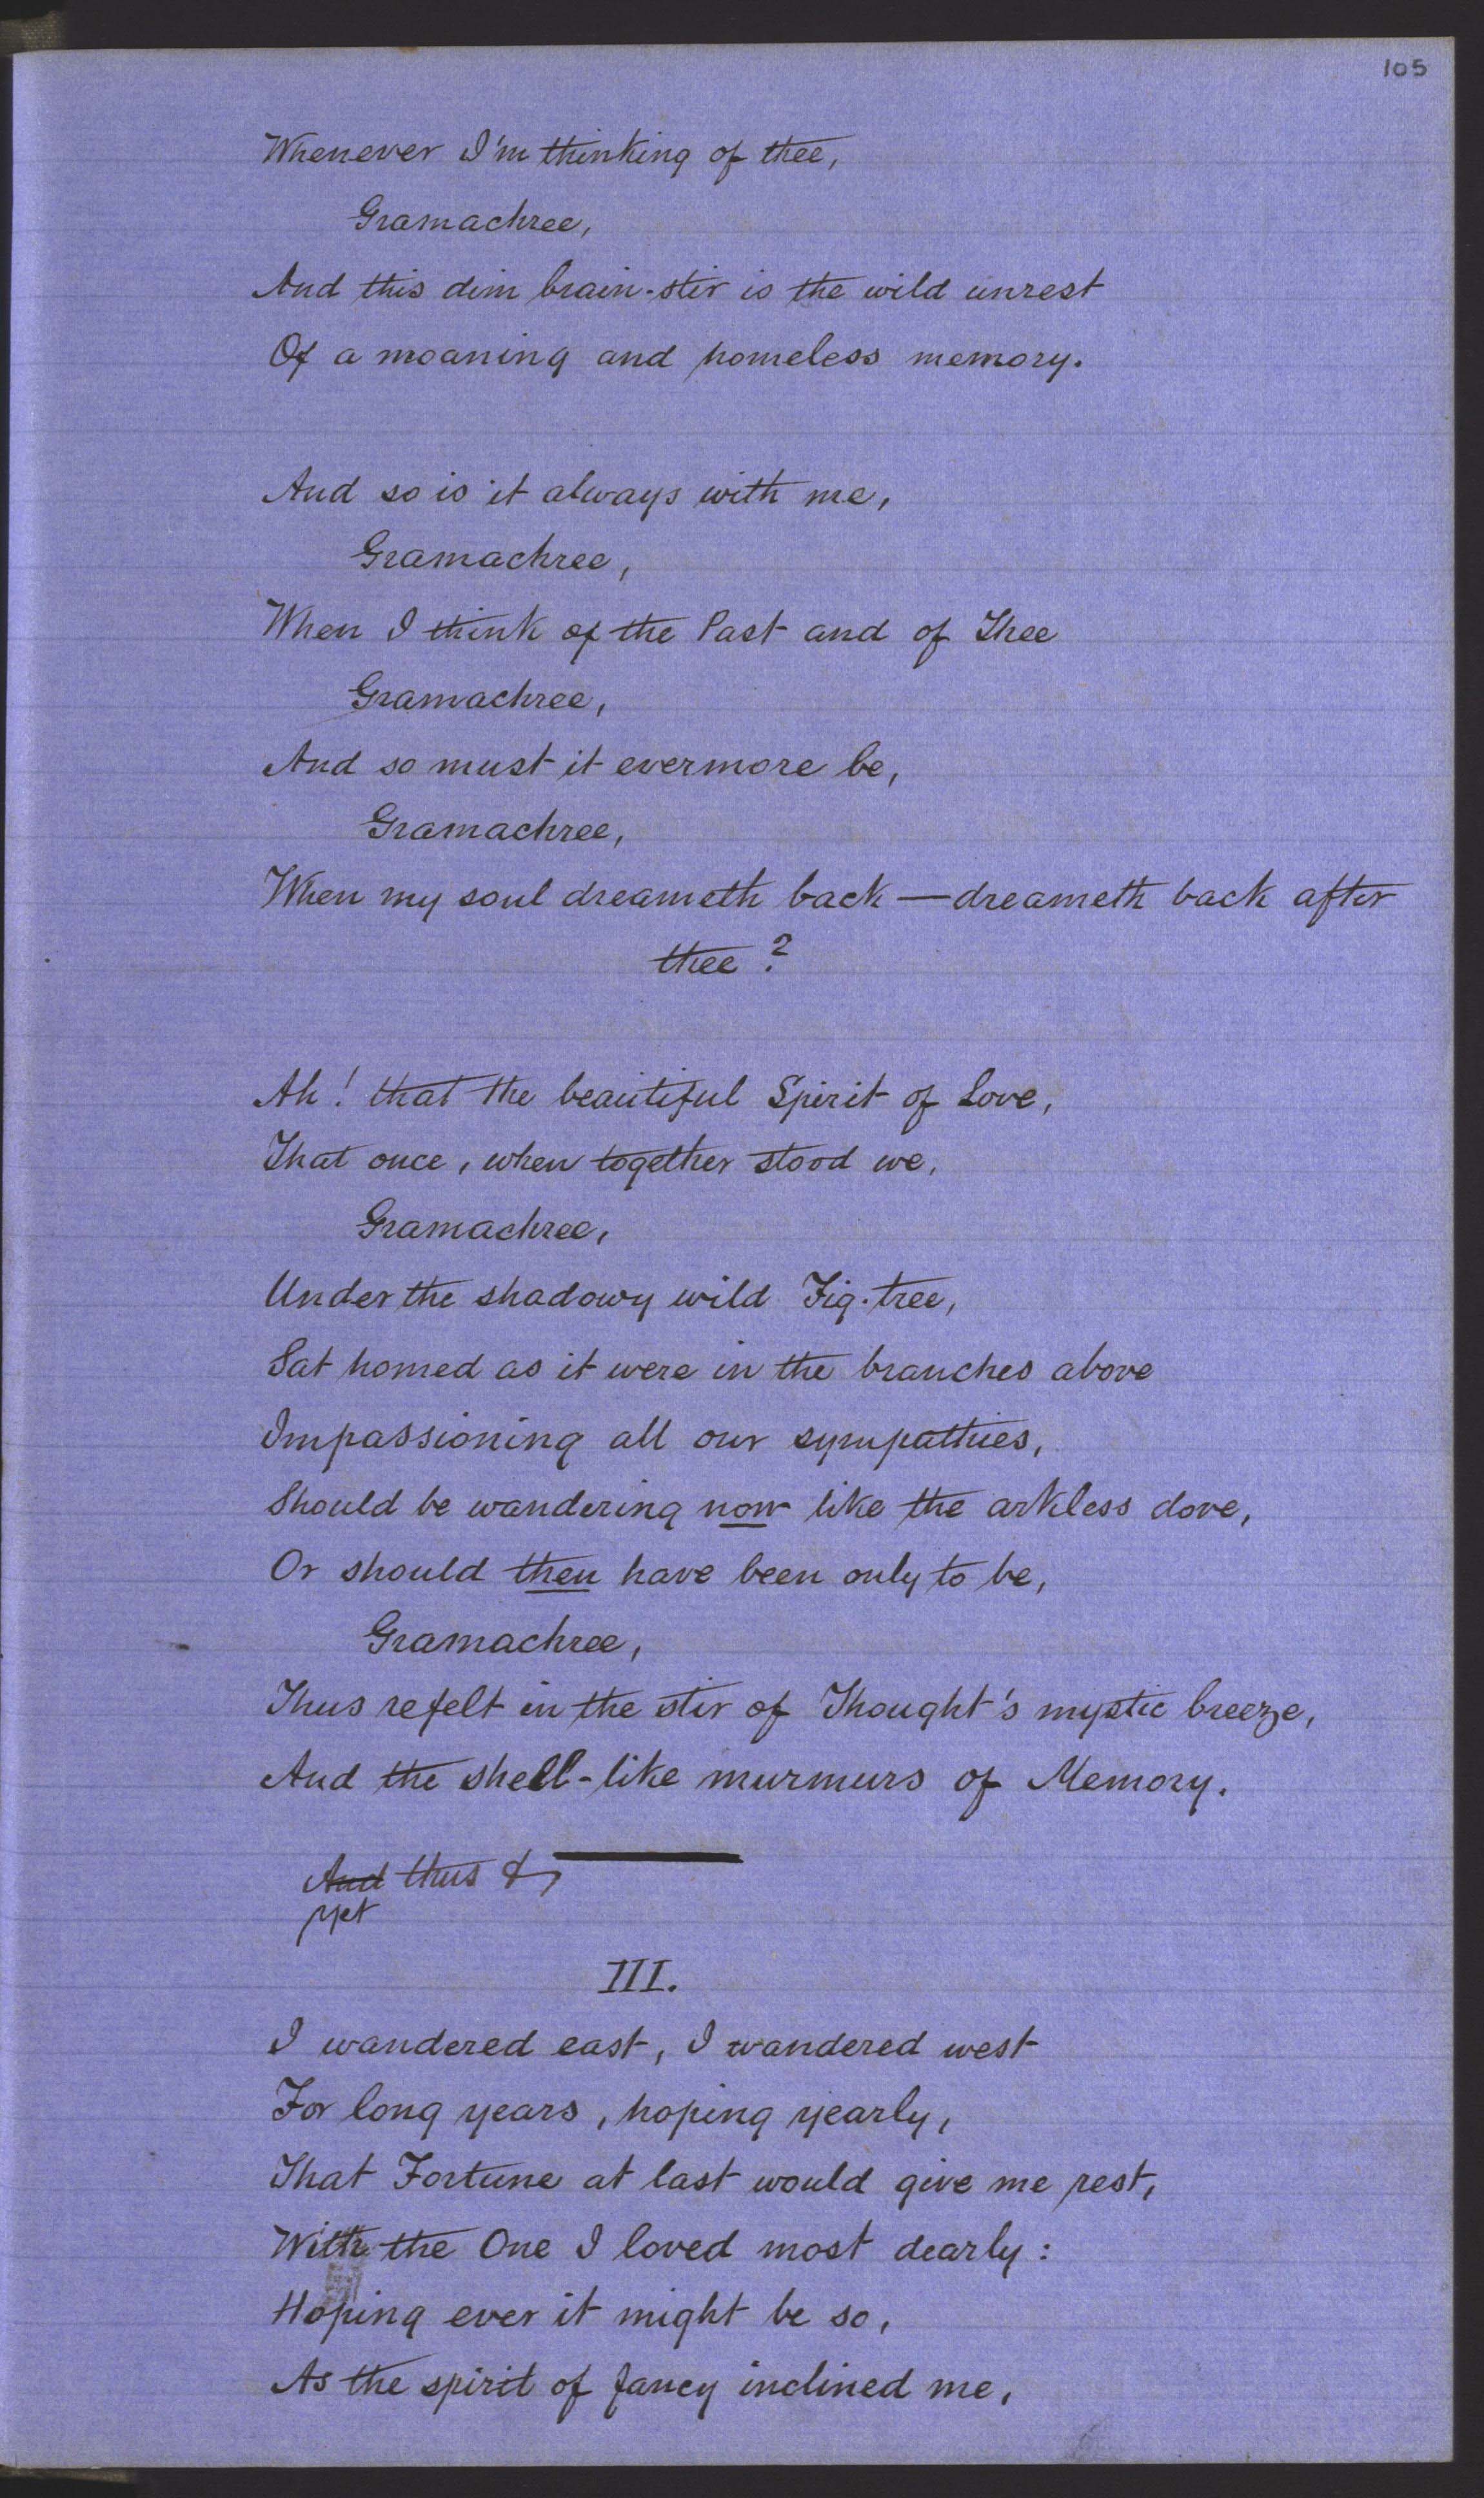 105
Whenever I'm thinking of thee,
Gramachree,
And this dim brain-stir is the wild unrest
Of a moaning and homeless memory.
And so is it always with me,
Gramachree,
When I think of the Past and of Thee
Gramachree,
And so must it evermore be,
Gramachree,
When my soul dreameth back — dreameth back after
thee?
Ah! that the beautiful Spirit of Love,
That once, when together stood we,
Gramachree,
Under the shadowy wild Fig-tree,
Sat homed as it were in the branches above
Impassioning all our sympathies,
Should be wandering now like the arkless dove,
Or should then have been only to be,
Gramachree,
Thus refelt in the stir of Thought's mystic breeze,
And the shell-like murmurs of Memory.
And thus &
yet
III.
I wandered east, I wandered west
For long years, hoping yearly,
That Fortune at last would give me rest,
With the One I loved most dearly:
Hoping ever it might be so,
As the spirit of fancy inclined me,